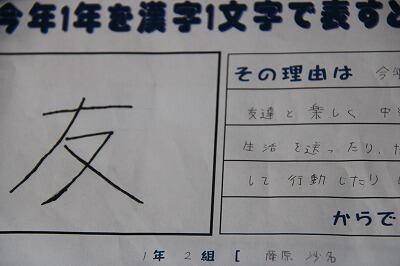 今年1年を漢字1文字で表すと
友
その理由は 今年
友達と楽しく中
生活を送ったり、
して行動したり
からで
1年 2組 [ 藤原 沙名